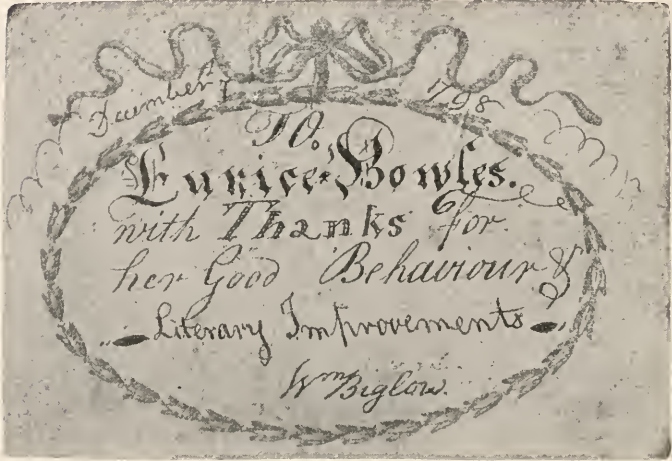 December 7 1798
TO.
Eunice Bowles.
with Thanks for
her Good Behaviour &
Literary Improvements
Wm Biglow.